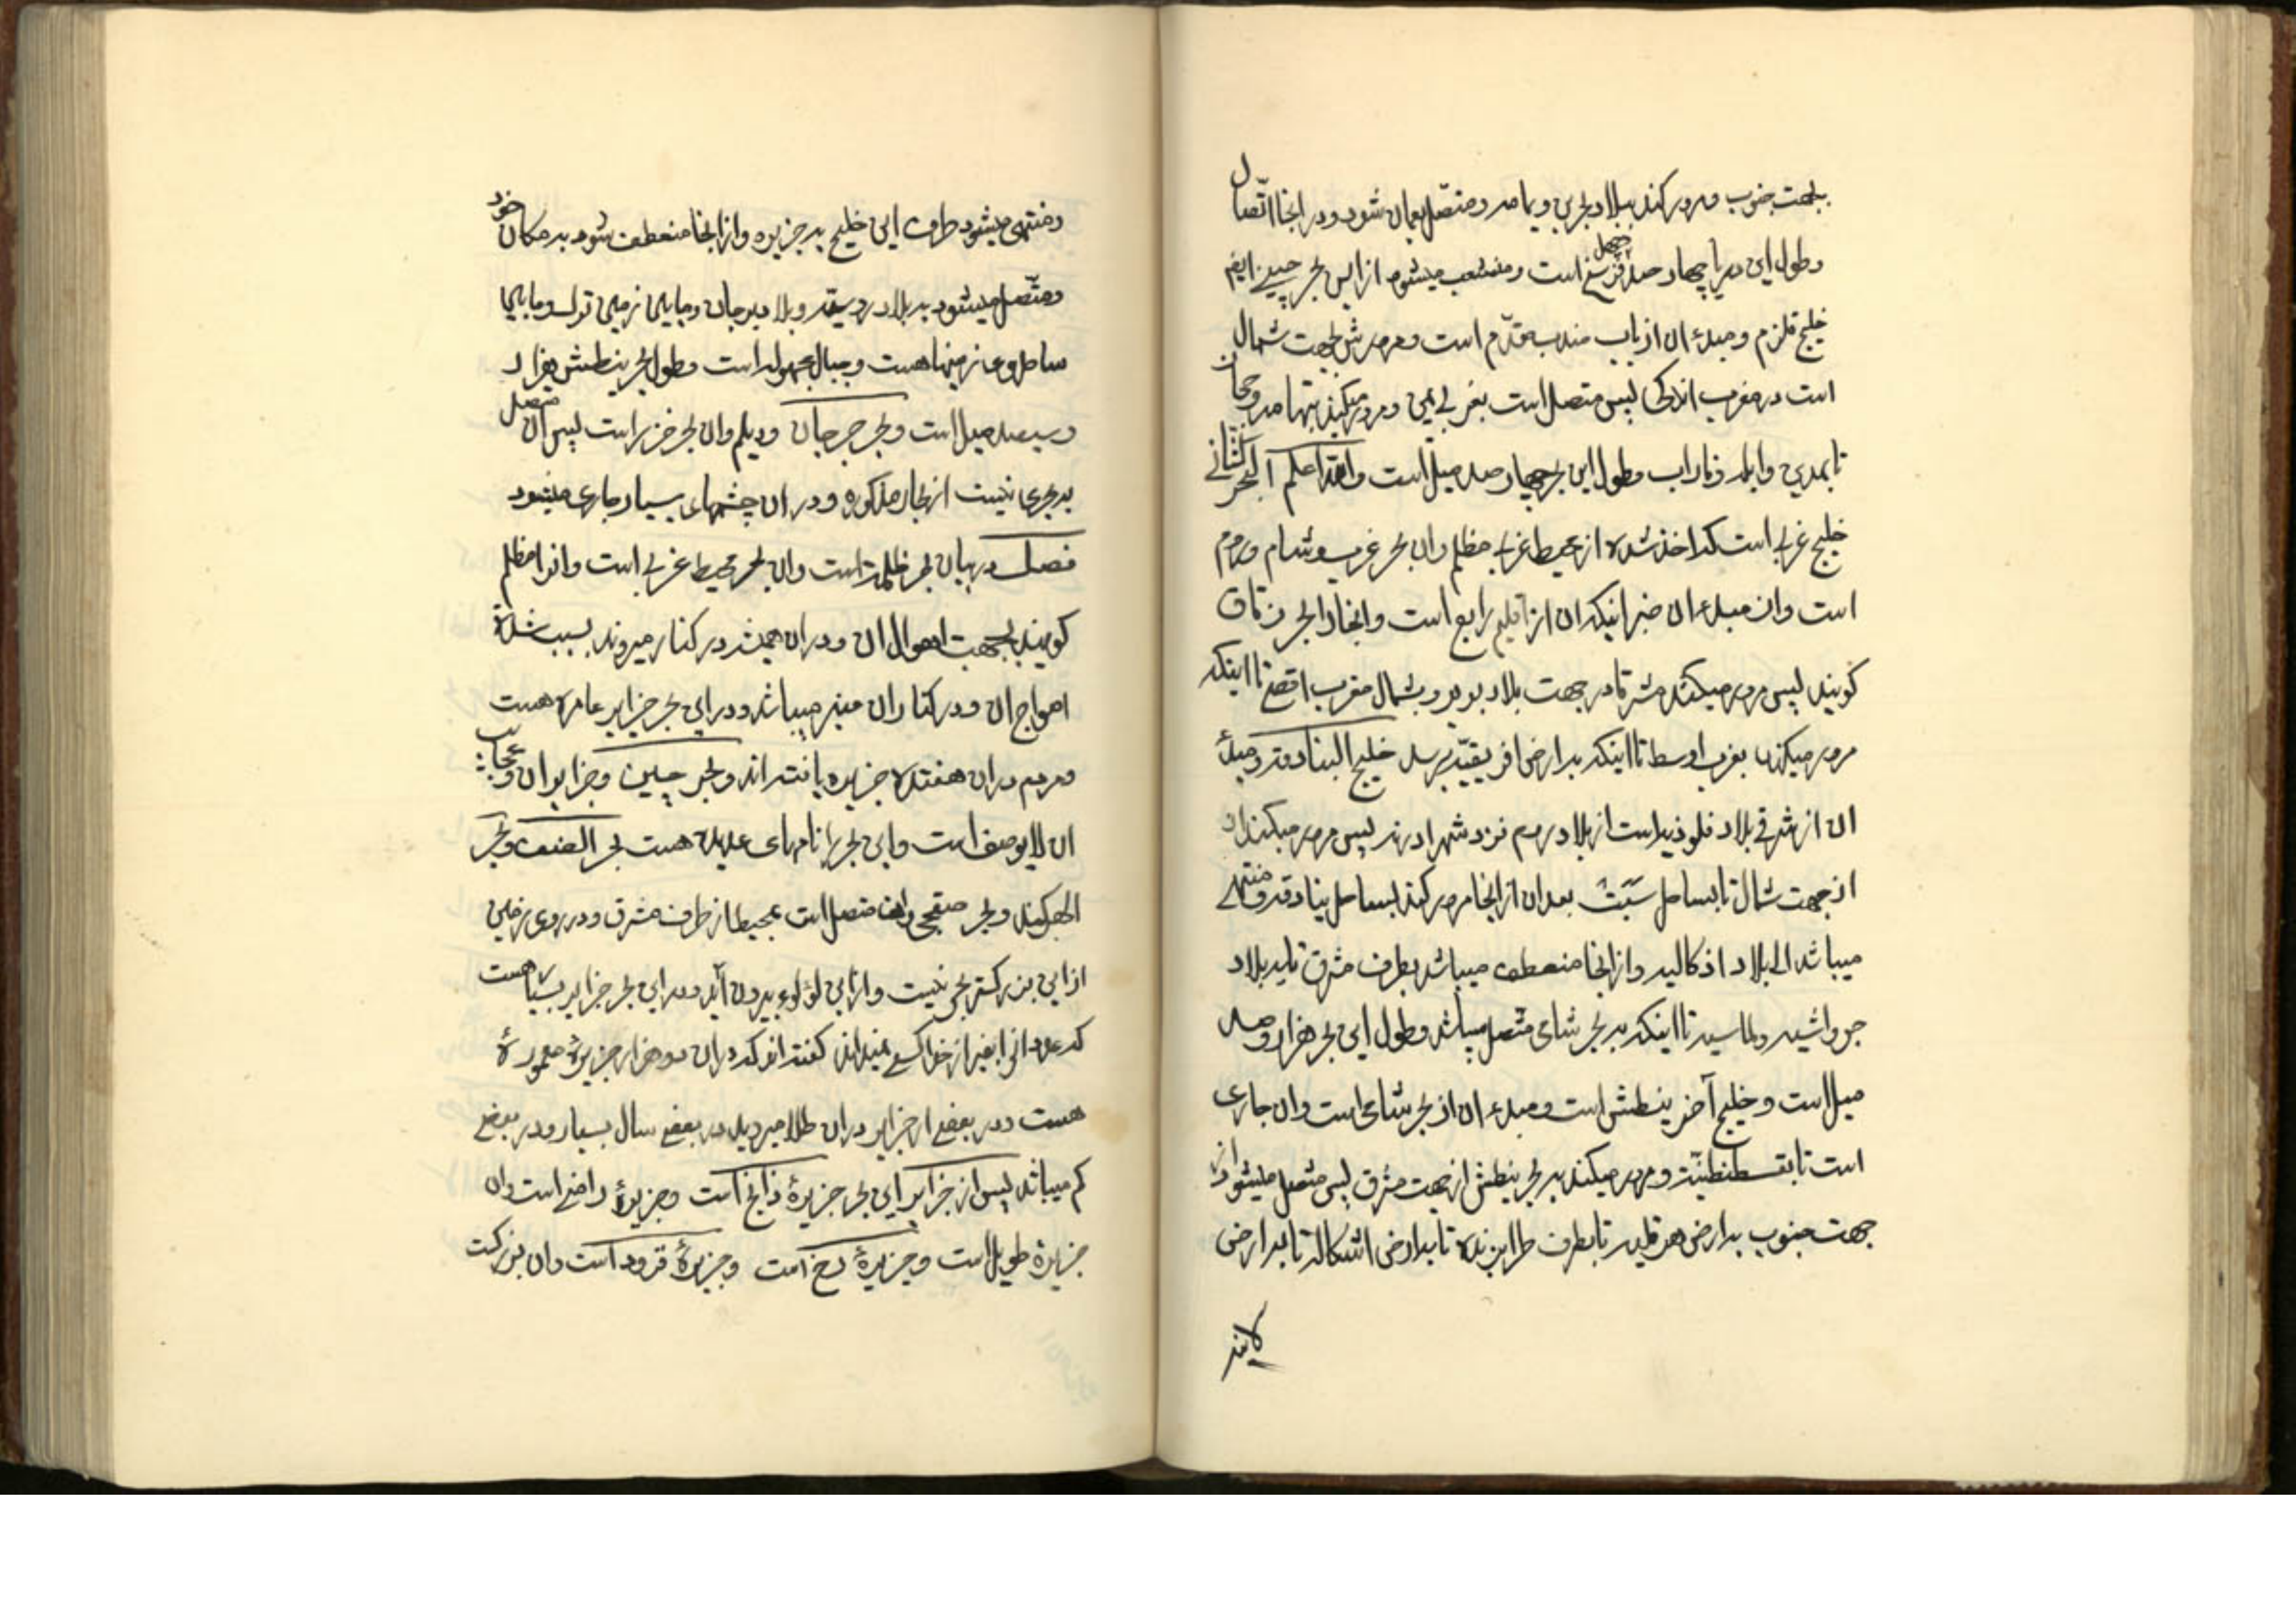 بجهت جنوب و مرور کند ببلاد بحرین و یمامه و متصل بعمان شود و در اینجا اتصال
و طول این دریا چهار صد و چهل فرسخ است و منشعب میشود از این بحر چین ایضا
خلیج قلزم و مبدء ان از باب مندب مقدّم است و مرورش بجهت شمال
است در مغرب اندکی پس متصل است بغربی یمن و مرور میکند بتهامه و حجاز
تا بمدین و ایله و فاراب و طول این بحر چهار صد میل است و الله اعلم البحر الثانی
خلیج غربی است که اخذ شده از محیط غربی مظلم وان بحر غرب و شام و روم
است وان مبدء ان اقلیم رابع است و اینجا را بحر زقاق
گویند پس مرور میکند مشرقا در جهت بلاد بربر و بشمال مغرب اقصی تا اینکه
مرور میکند بغرب اوسط تا اینکه بارض افریقیّه برسد خلیج البنادقه و مبدأ
ان از شرقی بلاد قلوذیه است از بلاد روم نزد شهر ادرنه پس مرور میکند ان
از جهت شمال تا بساحل سَبَت بعد ان از اینجا مرور کند بساحل بنادقه و منتهی
میباشد الی بلاد اذکالیه و از اینجا منعطف میباشد بطرف مشرق تا به بلاد
جرواشیه و لماسیه تا اینکه به بحر شامی متصل میباشد و طول این بحر هزار و صد
میل است و خلیج آخر ینطش است و مبدء ان از بحر شامی است وان جاری
است تا بقسطنطنیّه و مرور میکند به بحر ینطش از جهت مشرق پس متصل میشود از
جهت جنوب بارض هرقلیه تا بطرف طرابزنده تا بارض اشکاله تا بارض
لانیه
و منتهی میشود طرف این خلیج به جزیره و از اینجا منعطف شود به مکان خود
و متّصل میشود به بلاد روسیّه و بلاد برجان و مابین زمین ترک و مابین
ساحل و زمینها هست و جبال مجهوله است و طول بحر ینطش هزار
و سیصد میل است و بحر جرجان و دیلم وان بحر خزر است پس ان متصل
به بحری نیست از بحار مذکوره و در ان چشمهای بسیار جاری میشود
فصل در بیان بحر ظلمت است وان بحر محیط غربی است وانرا مظلم
گویند بجهت اهوال ان و در ان همیشه در کنار میروند بسبب شدّة
امواج ان و در کنار ان میباشد و در این بحر جزایر عامره هست
و مردم در ان هفتده جزیره یافته اند و بحر چین و جزایر ان و عجایب
ان لایوصف است و این بحر را نامهای عدیده هست بحر الصنف و بحر
الهرکند و بحر صنفجی وان متصل است بمحیط از طرف مشرق و در روی زمین
از این بزرگتر بحری نیست و از این لؤلوء بیرون آید و در این بحر جزایر بسیار هست
که عدد انرا بغیر از خدا کسی نمیداند گفته اند که در ان دو هزار جزیرهٔ معموره
هست و در بعضی از جزایر در ان طلا میروید در بعضی سال بسیار و در بعضی
کم میباشد پس از جزایر این بحر جزیرهٔ ذابج است و جزیرهٔ رامنی است وان
جزیرهٔ طویل است و جزیرهٔ رخ است و جزیرهٔ قرود است وان بزرکست